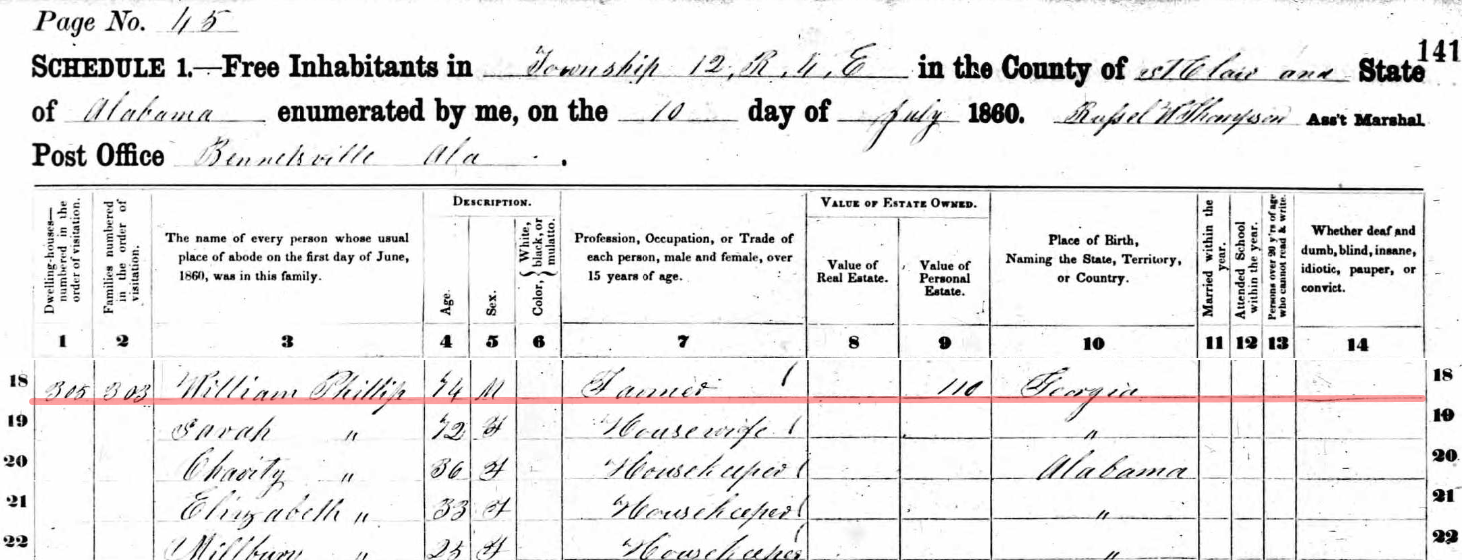 Page No. 45
141
SCHEDULE 1.—Free Inhabitants in Township 12, R, 4, E in the County of St Clair and State
of Alabama enumerated by me, on the 10 day of July 1860. Russel W Thompson Ass't Marshal.
Post Office Bennetsville Ala.
DESCRIPTION. VALUE OF ESTATE OWNED.
Dwelling-houses—numbered in the order of visitation.
Families numbered in the order of visitation.
The name of every person whose usual place of abode on the first day of June, 1860, was in this family.
Age.
Sex.
Color, { White, black, or mulatto.
Profession, Occupation, or Trade of each person, male and female, over 15 years of age.
Value of Real Estate.
Value of Personal Estate.
Place of Birth, Naming the State, Territory, or Country.
Married within the year.
Attended School within the year.
Persons over 20 y'rs of age who cannot read & write.
Whether deaf and dumb, blind, insane, idiotic, pauper, or convict.
1 2 3 4 5 6 7 8 9 10 11 12 13 14
18 305 303 William Phillip 74 M Farmer 110 Georgia 18
19 Sarah " 72 F Housewife " 19
20 Charity " 36 F Housekeeper Alabama 20
21 Elizabeth " 33 F Housekeeper " 21
22 Millbury " 25 F Housekeeper " 22